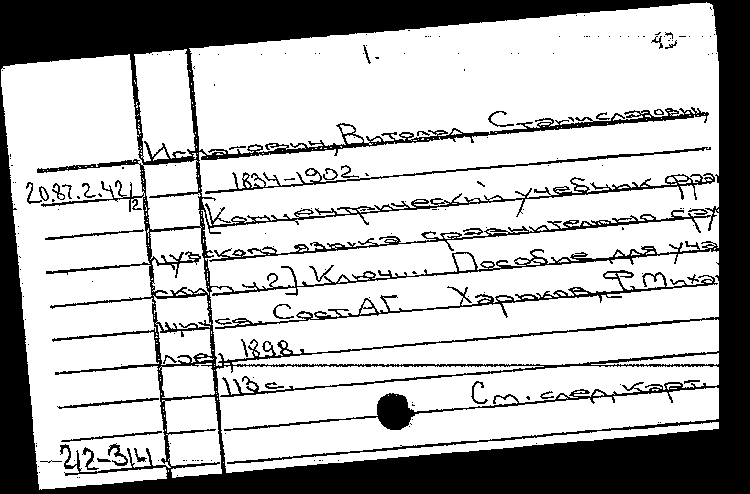 1. 43
Игнатович, Витольд Станиславович,
20.87.2.42/2 1834-1902.
[Концентрический учебник фран
цузского языка сравнительно с рус
ским ч. 2]. Ключ... Пособие для уча
щихся. Сост. А.Г. Харьков, Ф. Михай
лов, 1898.
113 с.
См. след. карт.
212-314.